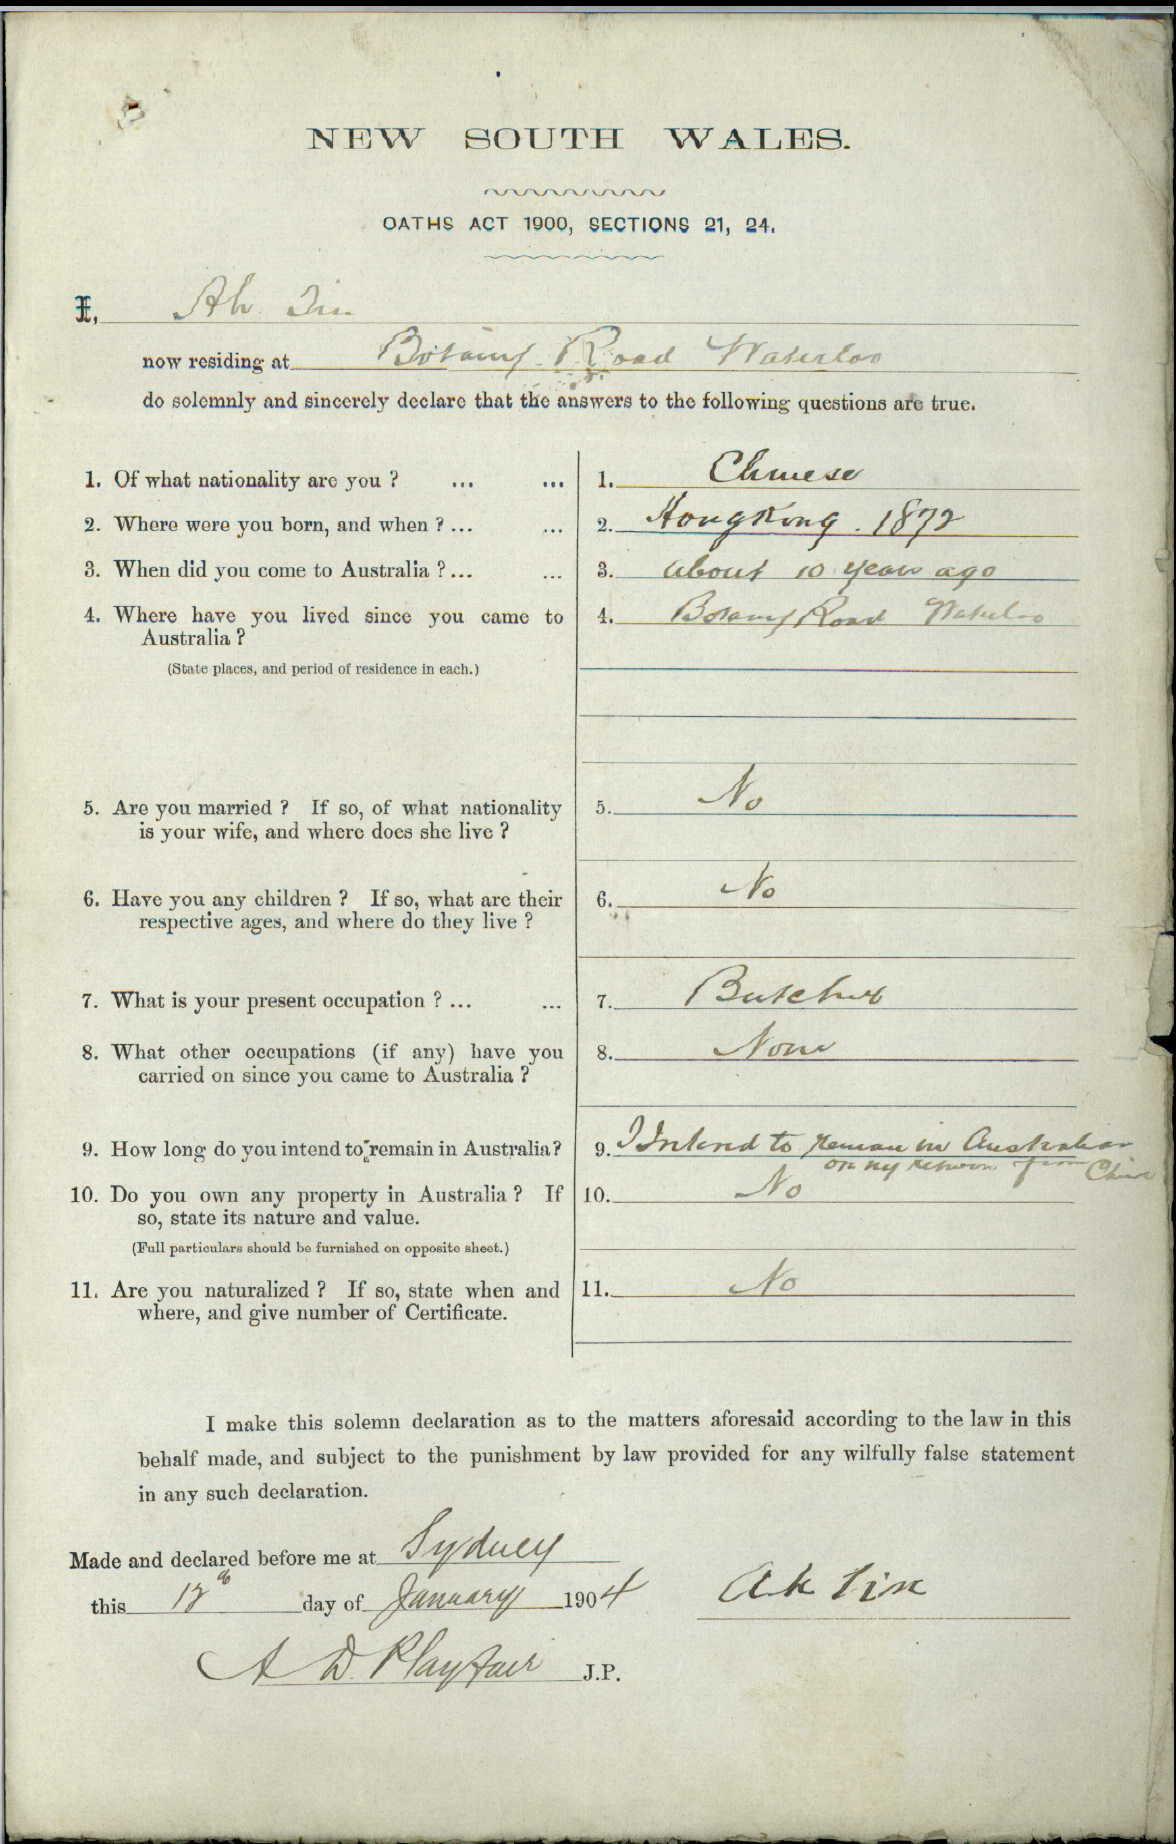 NEW SOUTH WALES.
OATHS ACT 1900, SECTIONS 21, 24.
I, Ah Tin
now residing at Botany Road Waterloo
do solemnly and sincerely declare that the answers to the following questions are true.
1. Of what nationality are you ? ... ... 1. Chinese
2. Where were you born, and when ? ... ... 2. HongKong . 1872
3. When did you come to Australia ? ... ... 3. about 10 years ago
4. Where have you lived since you came to 4. Botany Road Waterloo
Australia ?
(State places, and period of residence in each.)
5. Are you married ? If so, of what nationality 5. No
is your wife, and where does she live ?
6. Have you any children ? If so, what are their 6. No
respective ages, and where do they live ?
7. What is your present occupation ? ... ... 7. Butcher
8. What other occupations (if any) have you 8. None
carried on since you came to Australia ?
9. How long do you intend to remain in Australia? 9. I Intend to remain in Australia
on my return from China
10. Do you own any property in Australia ? If 10. No
so, state its nature and value.
(Full particulars should be furnished on opposite sheet.)
11. Are you naturalized ? If so, state when and 11. No
where, and give number of Certificate.
I make this solemn declaration as to the matters aforesaid according to the law in this
behalf made, and subject to the punishment by law provided for any wilfully false statement
in any such declaration.
Made and declared before me at Sydney
this day of January 1904 Ah Tin
A D Playfair J.P.